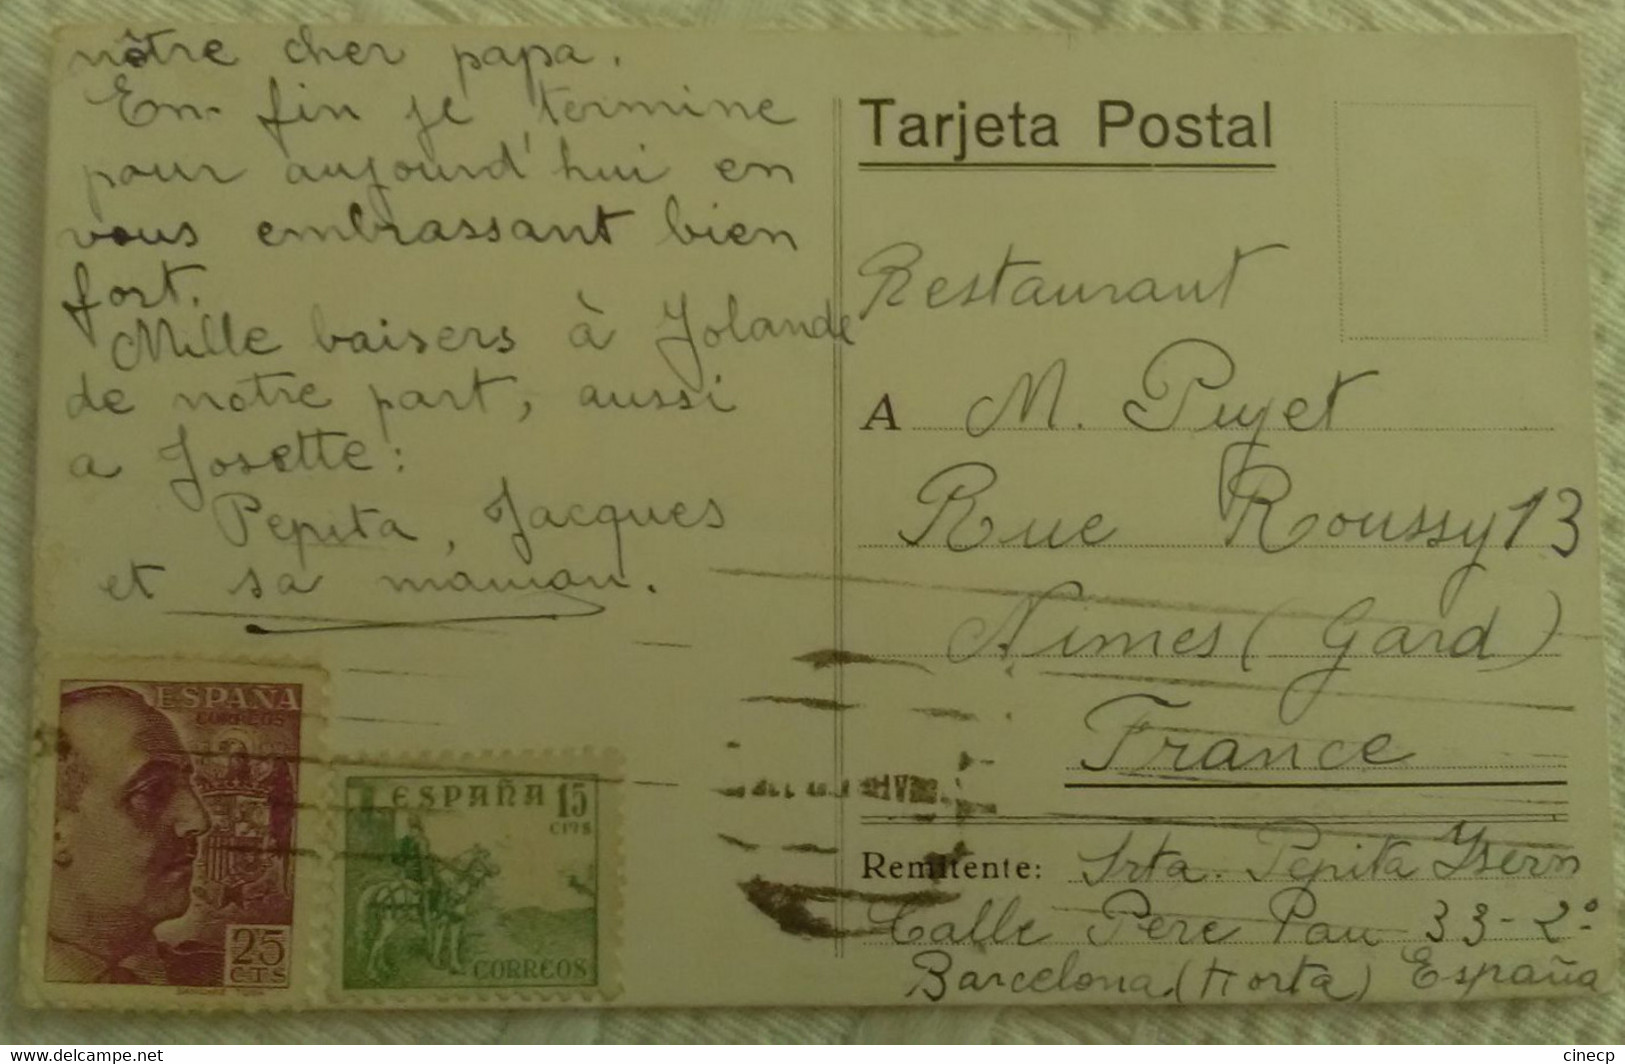 nôtre cher papa.
En-fin je termine
pour aujourd'hui en
vous embrassant bien
fort.
Mille baisers à Jolande
de notre part, aussi
a Josette:
Pepita, Jacques
et sa maman.
Tarjeta Postal
Restaurant
A M. Pujet
Rue Roussy 13
Nimes (Gard)
France
Remitente: Srta. Pepita Ysern
Calle Pere Pau 33-2º
Barcelona (Horta) España
ESPAÑA
CORREOS
25
CTS
ESPAÑA 15
CTS
CORREOS
https://www.delcampe.net
cinecp